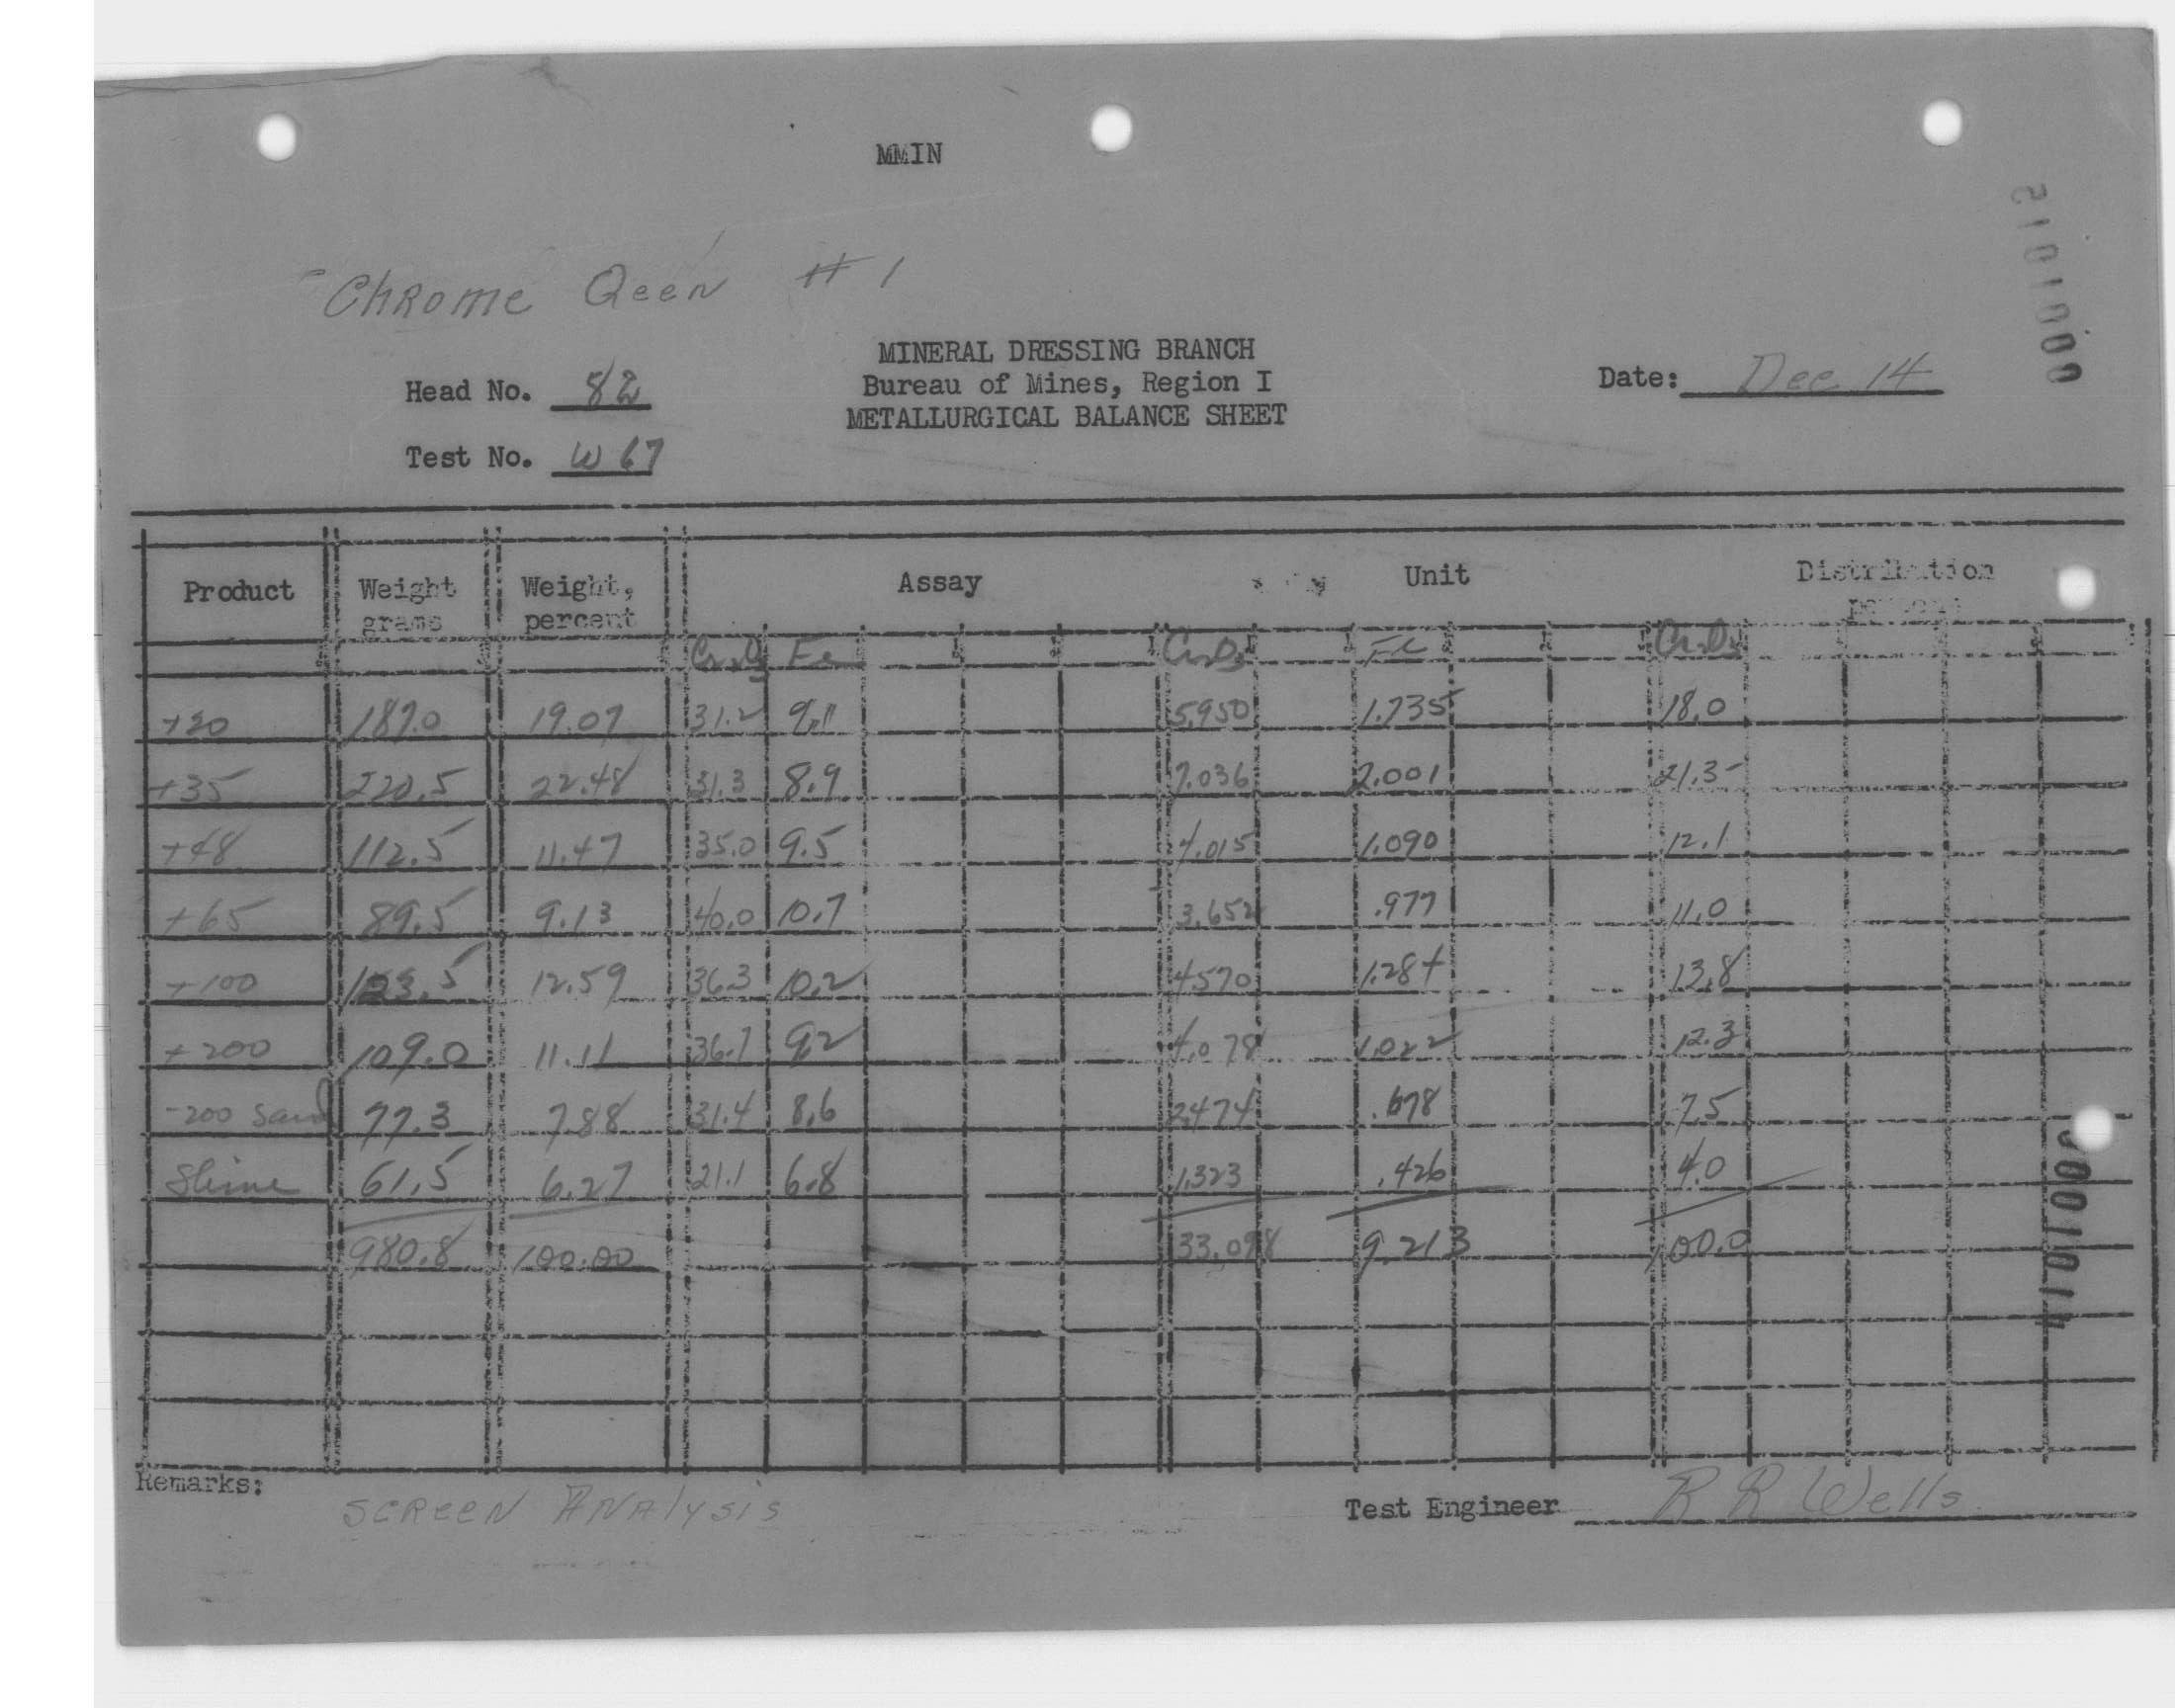 MMIN
Chrome Qeen # 1
MINERAL DRESSING BRANCH
Head No. 82 Bureau of Mines, Region I Date: Dec 14
METALLURGICAL BALANCE SHEET
Test No. W 67
Product Weight grams Weight, percent Assay Unit Distribution percent
Cr2O3 Fe Cr2O3 Fe Cr2O3
+20 187.0 19.07 31.2 9.1 5.950 1.735 18.0
+35 220.5 22.48 31.3 8.9 7.036 2.001 21.3
+48 112.5 11.47 35.0 9.5 4.015 1.090 12.1
+65 89.5 9.13 40.0 10.7 3.652 .977 11.0
+100 123.5 12.59 36.3 10.2 4.570 1.284 13.8
+200 109.0 11.11 36.7 9.2 4.078 1.022 12.3
-200 Sand 77.3 7.88 31.4 8.6 2.474 .678 7.5
Slime 61.5 6.27 21.1 6.8 1.323 .426 4.0
980.8 100.00 33.098 9.213 100.0
Remarks: Screen Analysis
Test Engineer R R Wells
0001012
0001014